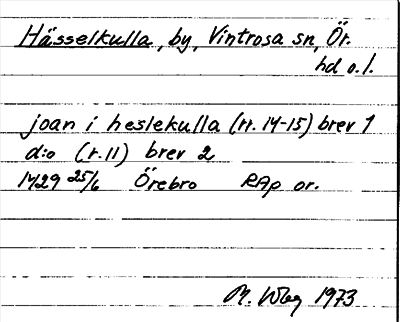 Hässelkulla, by, Vintrosa sn, Ör.
hd o.l.
joan i heslekulla (rr. 14-15) brev 1
d:o (r.11) brev 2
1429 25/6 Örebro RAp or.
M. Wbg 1973